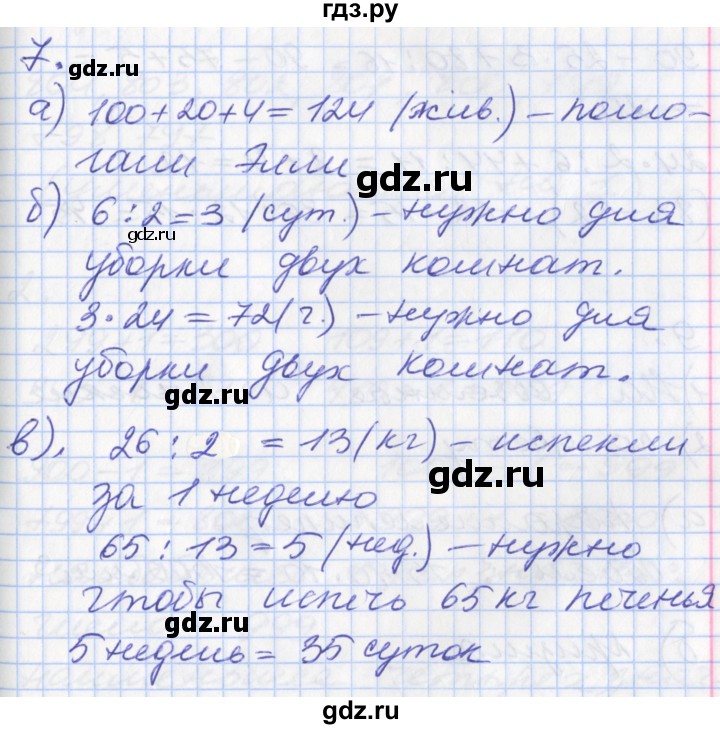 гдз.ру
7. gdz.ru
а) 100+20+4=124 (жив.) – помо-
гали Элли
gdz.ru
б) 6:2=3 (сут.) – нужно для
gdz.ru
уборки двух комнат.
3·24=72(ч.) – нужно для
gdz.ru
уборки двух комнат.
gdz.ru
в). 26:2 =13(кг) – испекли
gdz.ru
за 1 неделю
65:13=5 (нед.) – нужно
gdz.ru
чтобы испечь 65кг печенья
gdz.ru
5 недель = 35 суток
gdz.ru